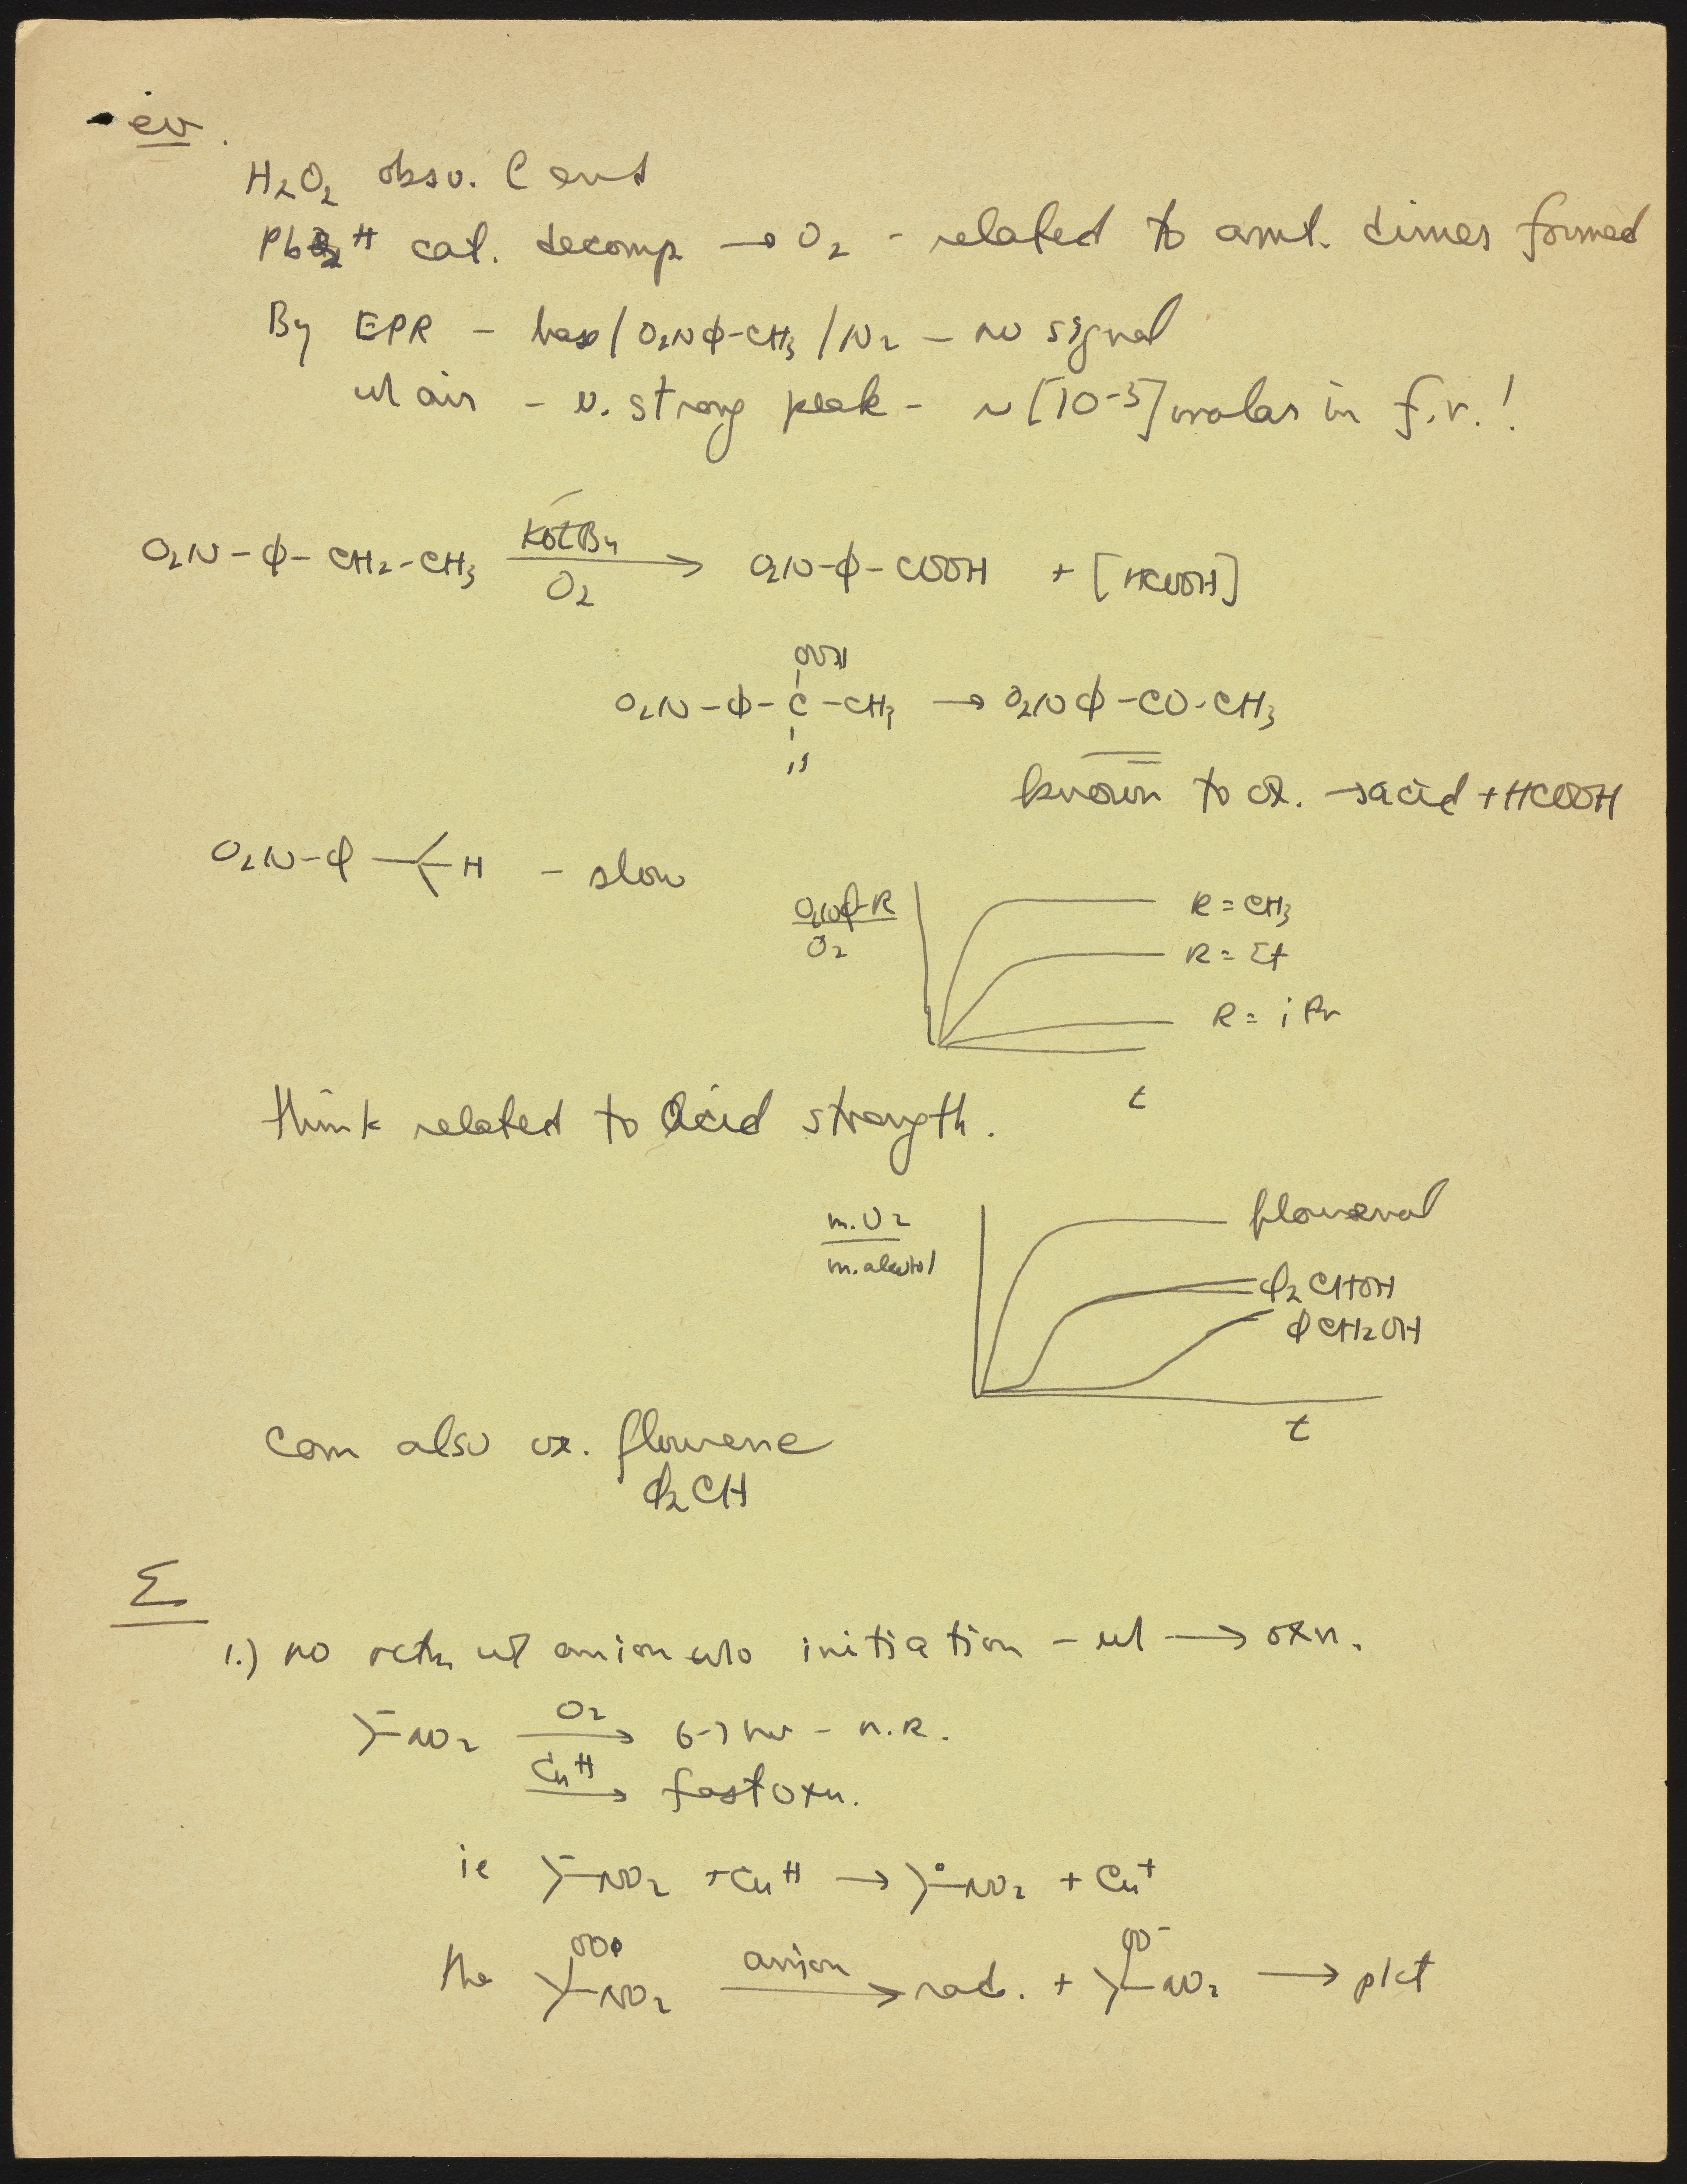 ev.
H₂O₂ obsv. @ end
Pb⁺⁺ cat. decomp → O₂ - related to amt. dimer formed
By EPR - base / O₂NΦ-CH₃ / N₂ - no signal
w/ air - v. strong peak - ~ [10⁻³] molar in f.r.!
O₂N-Φ-CH₂-CH₃ KOtBu / O₂ → O₂N-Φ-COOH + [HCOOH]
OOH
O₂N-Φ-C-CH₃ → O₂NΦ-CO-CH₃
H
known to ox. → acid + HCOOH
O₂N-Φ-H - slow
O₂NΦ-R / O₂
R = CH₃
R = Et
R = iPr
t
think related to acid strength.
m. O₂ / m. alcohol
flourenol
Φ₂CHOH
ΦCH₂OH
t
Can also ox. flourene
Φ₂CH
Σ
1.) no rctn w/ anion w/o initiation - w/ → oxn.
>-NO₂ O₂ → 6-7 hr - n.R.
Cu⁺⁺ → fast oxn.
ie >-NO₂ + Cu⁺⁺ → >•-NO₂ + Cu⁺
the OO• >-NO₂ anion → rad. + OO⁻ >-NO₂ → pdct